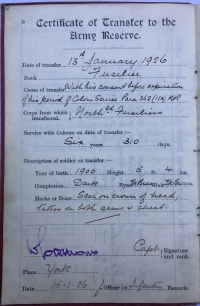 Certificate of Transfer to the
Army Reserve.
Date of transfer 13th January 1926
Rank Fusilier
Cause of transfer With his consent before expiration
of his period of Colour Service Para 362(16) KR
Corps from which transferred. North'd Fusiliers
Service with Colours on date of transfer :-
Six years. 310 days.
Description of soldier on transfer :-
Year of birth. 1900 Height 5 ft. 4 ins.
Complexion Dark Eyes Brown Hair Brown
Marks or Scars Scar on crown of head,
tattoo on both arms & chest.
Capt. Signature and rank.
Place York
Date 15-1-26 Officer i/c Infantry Records.